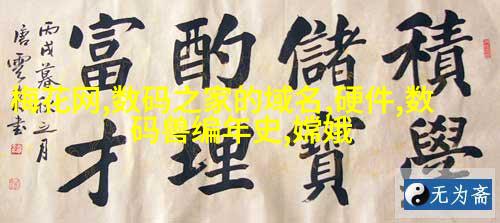 積學
儲寶
酌理
富才
丙戌暮之月
唐書
梅花网,数码之家的域名,硬件,数
码兽编年史,嫦娥
无为斋